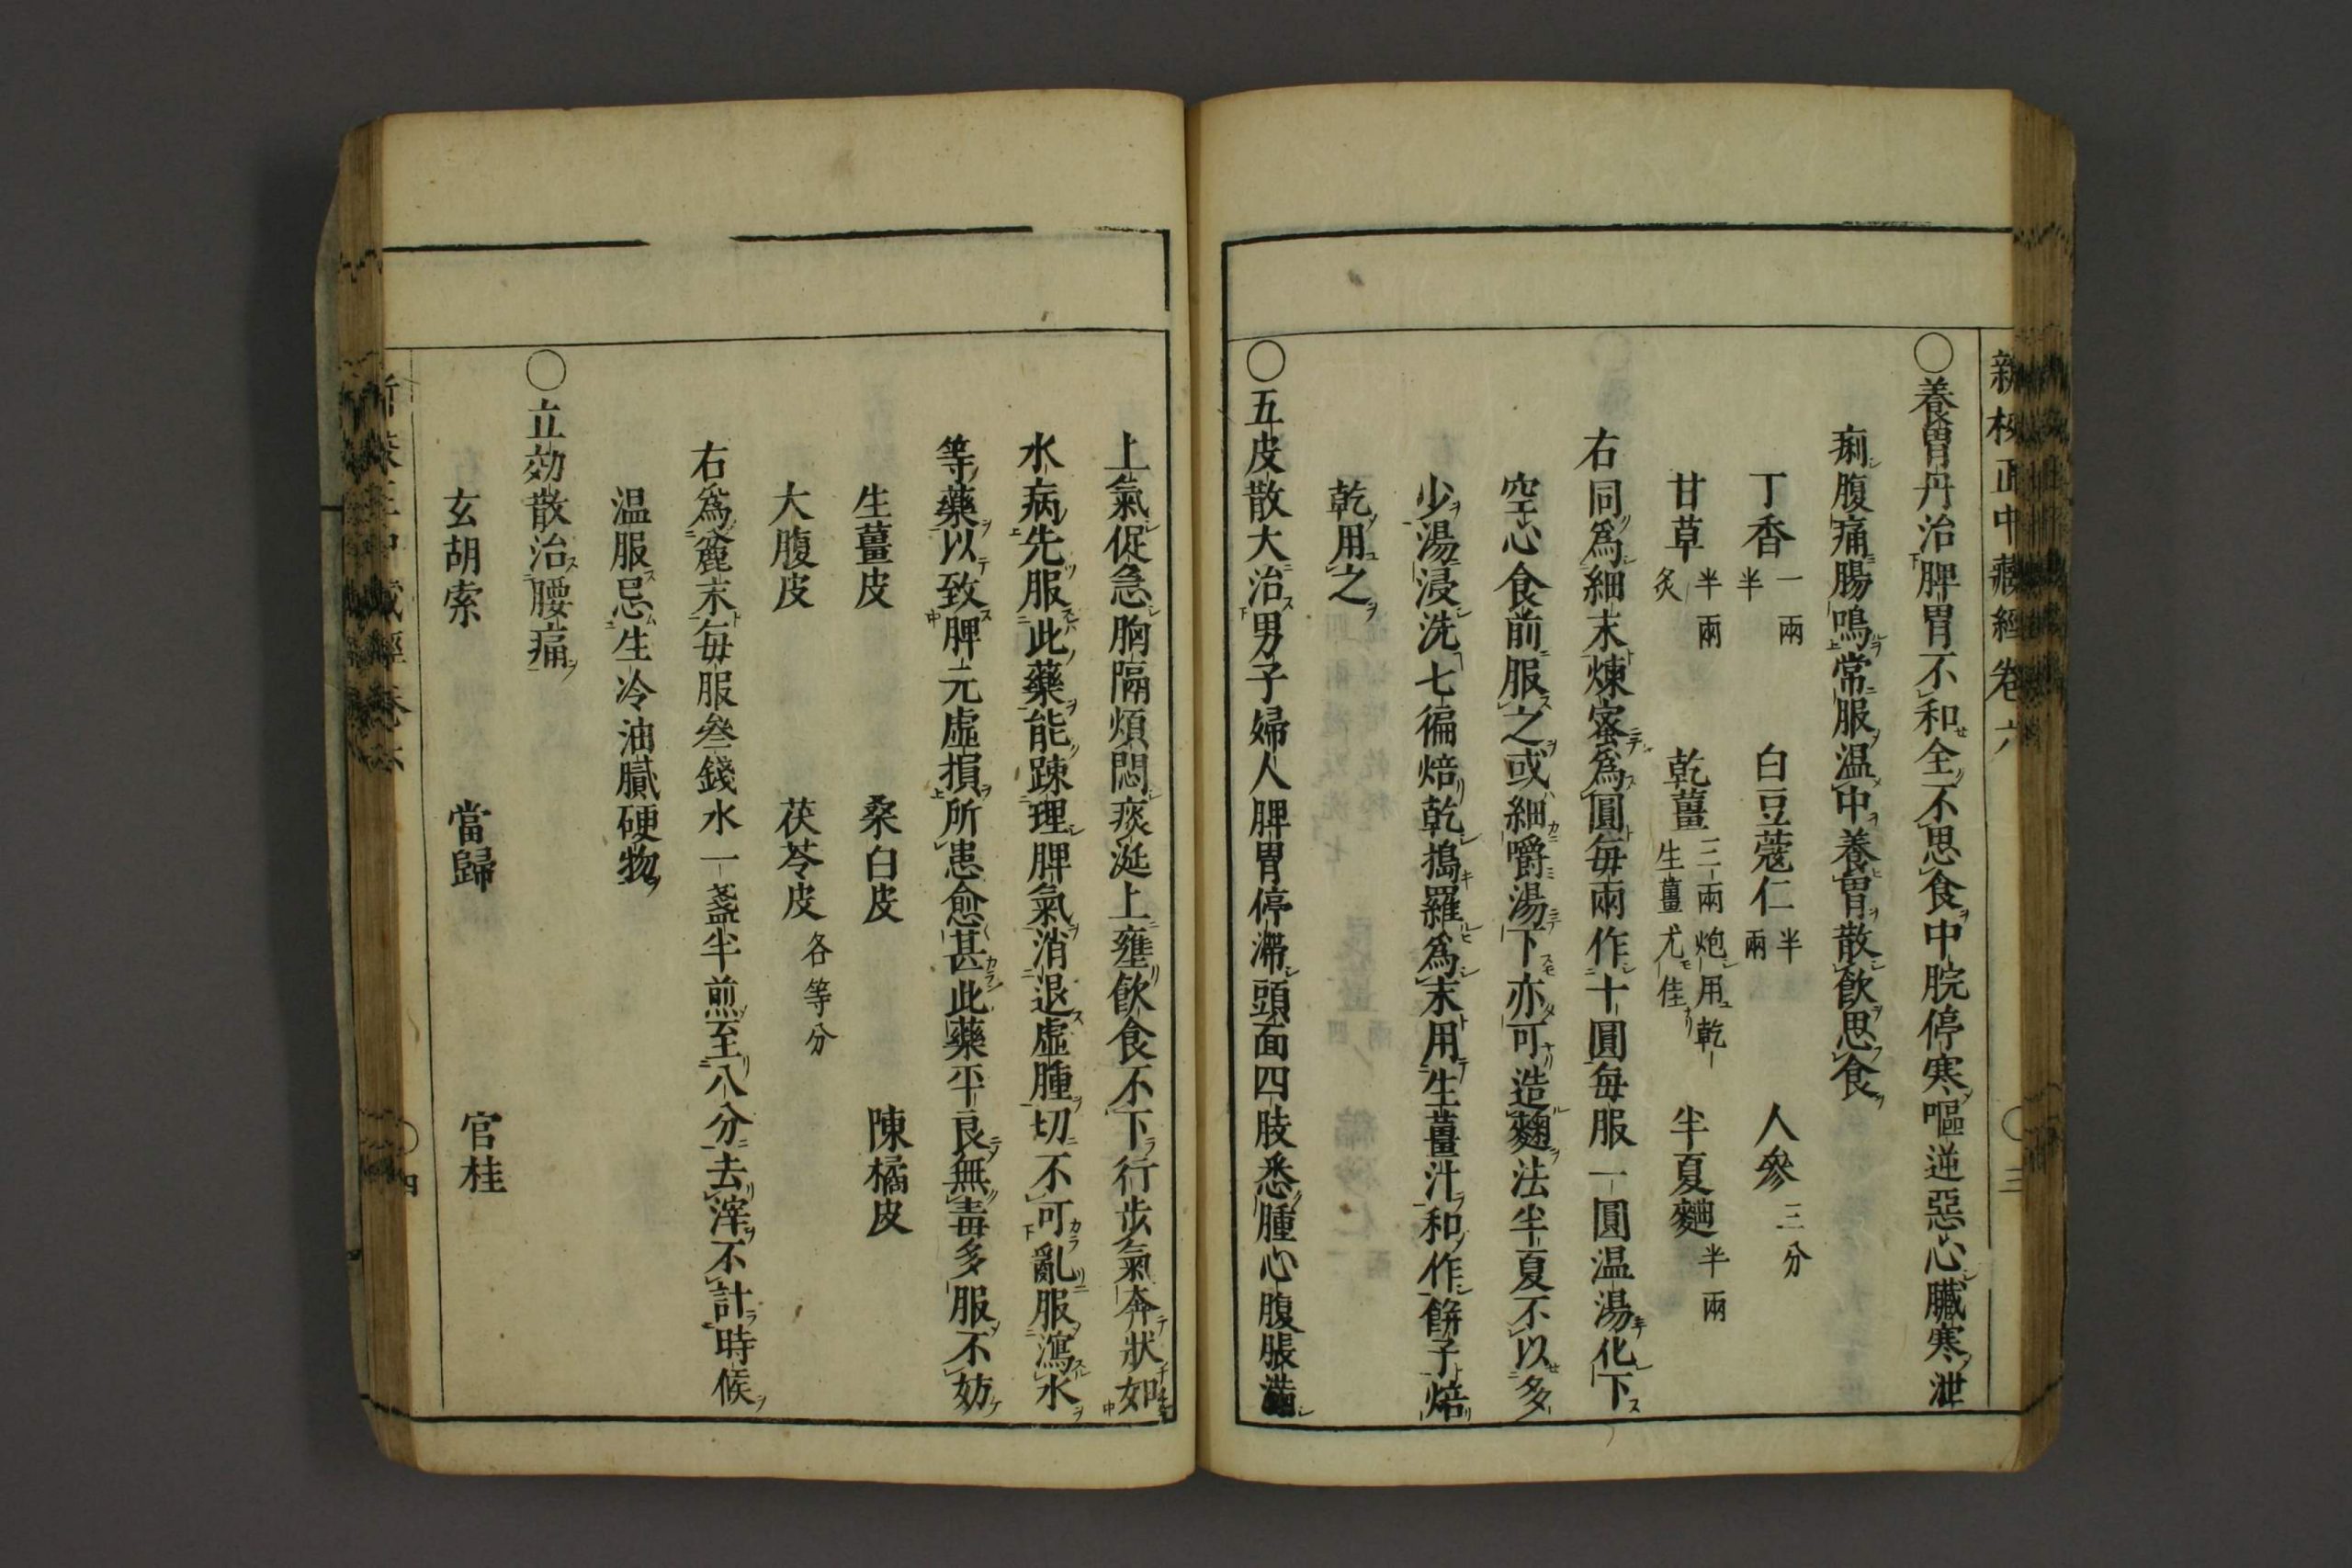 新校正中藏經卷六
三
○養胃丹治脾胃不和全不思食中脘停寒嘔逆惡心臟寒泄
痢腹痛腸鳴常服温中養胃散飲思食
丁香一兩半　白豆蔻仁半兩　人參三分
甘草半兩炙　乾薑三兩炮用乾生薑尤佳　半夏麯半兩
右同爲細末煉蜜爲圓每兩作十圓每服一圓温湯化下
空心食前服之或細嚼湯下亦可造麴法半夏不以多
少湯浸洗七徧焙乾搗羅爲末用生薑汁和作餅子焙
乾用之
○五皮散大治男子婦人脾胃停滯頭面四肢悉腫心腹脹滿
上氣促急胸隔煩悶痰涎上壅飲食不下行步氣奔狀如
水病先服此藥能踈理脾氣消退虛腫切不可亂服瀉水
等藥以致脾元虛損所患愈甚此藥平良無毒多服不妨
生薑皮　桑白皮　陳橘皮
大腹皮　茯苓皮各等分
右爲麄末每服叄錢水一盞半煎至八分去滓不計時候
温服忌生冷油膩硬物
○立効散治腰痛
玄胡索　當歸　官桂
四